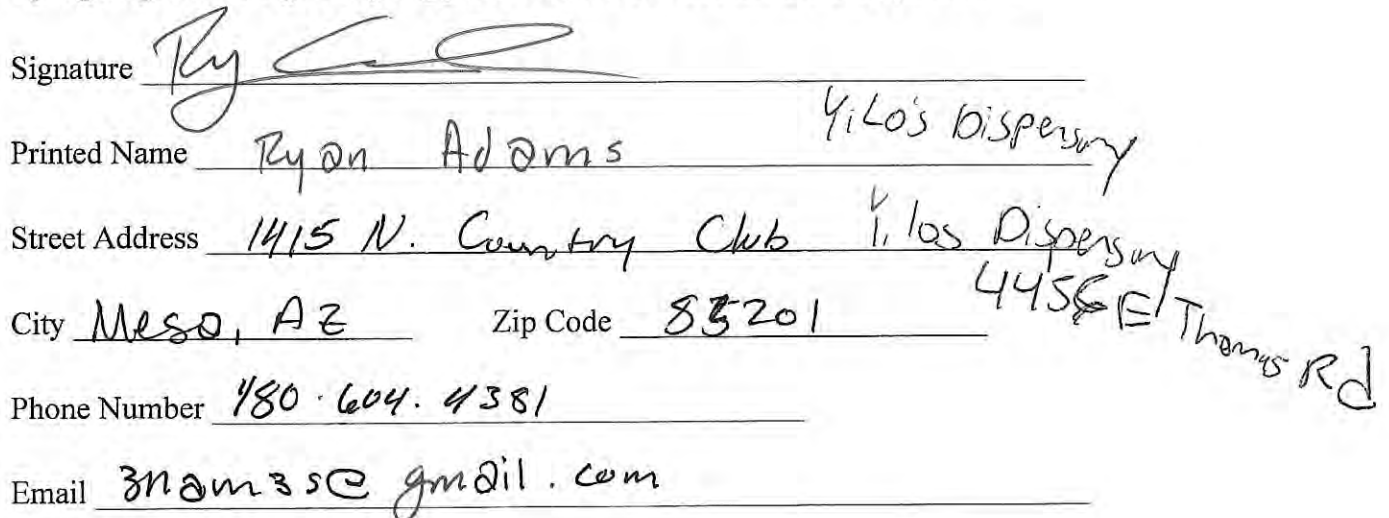 Signature Ry
Printed Name Ryan Adams
YiLo's Dispensary
Street Address 1415 N. Country Club
Yilos Dispensary
4456 E Thomas Rd
City Mesa, AZ Zip Code 85201
Phone Number 480.604.4381
Email 3nam3s@gmail.com